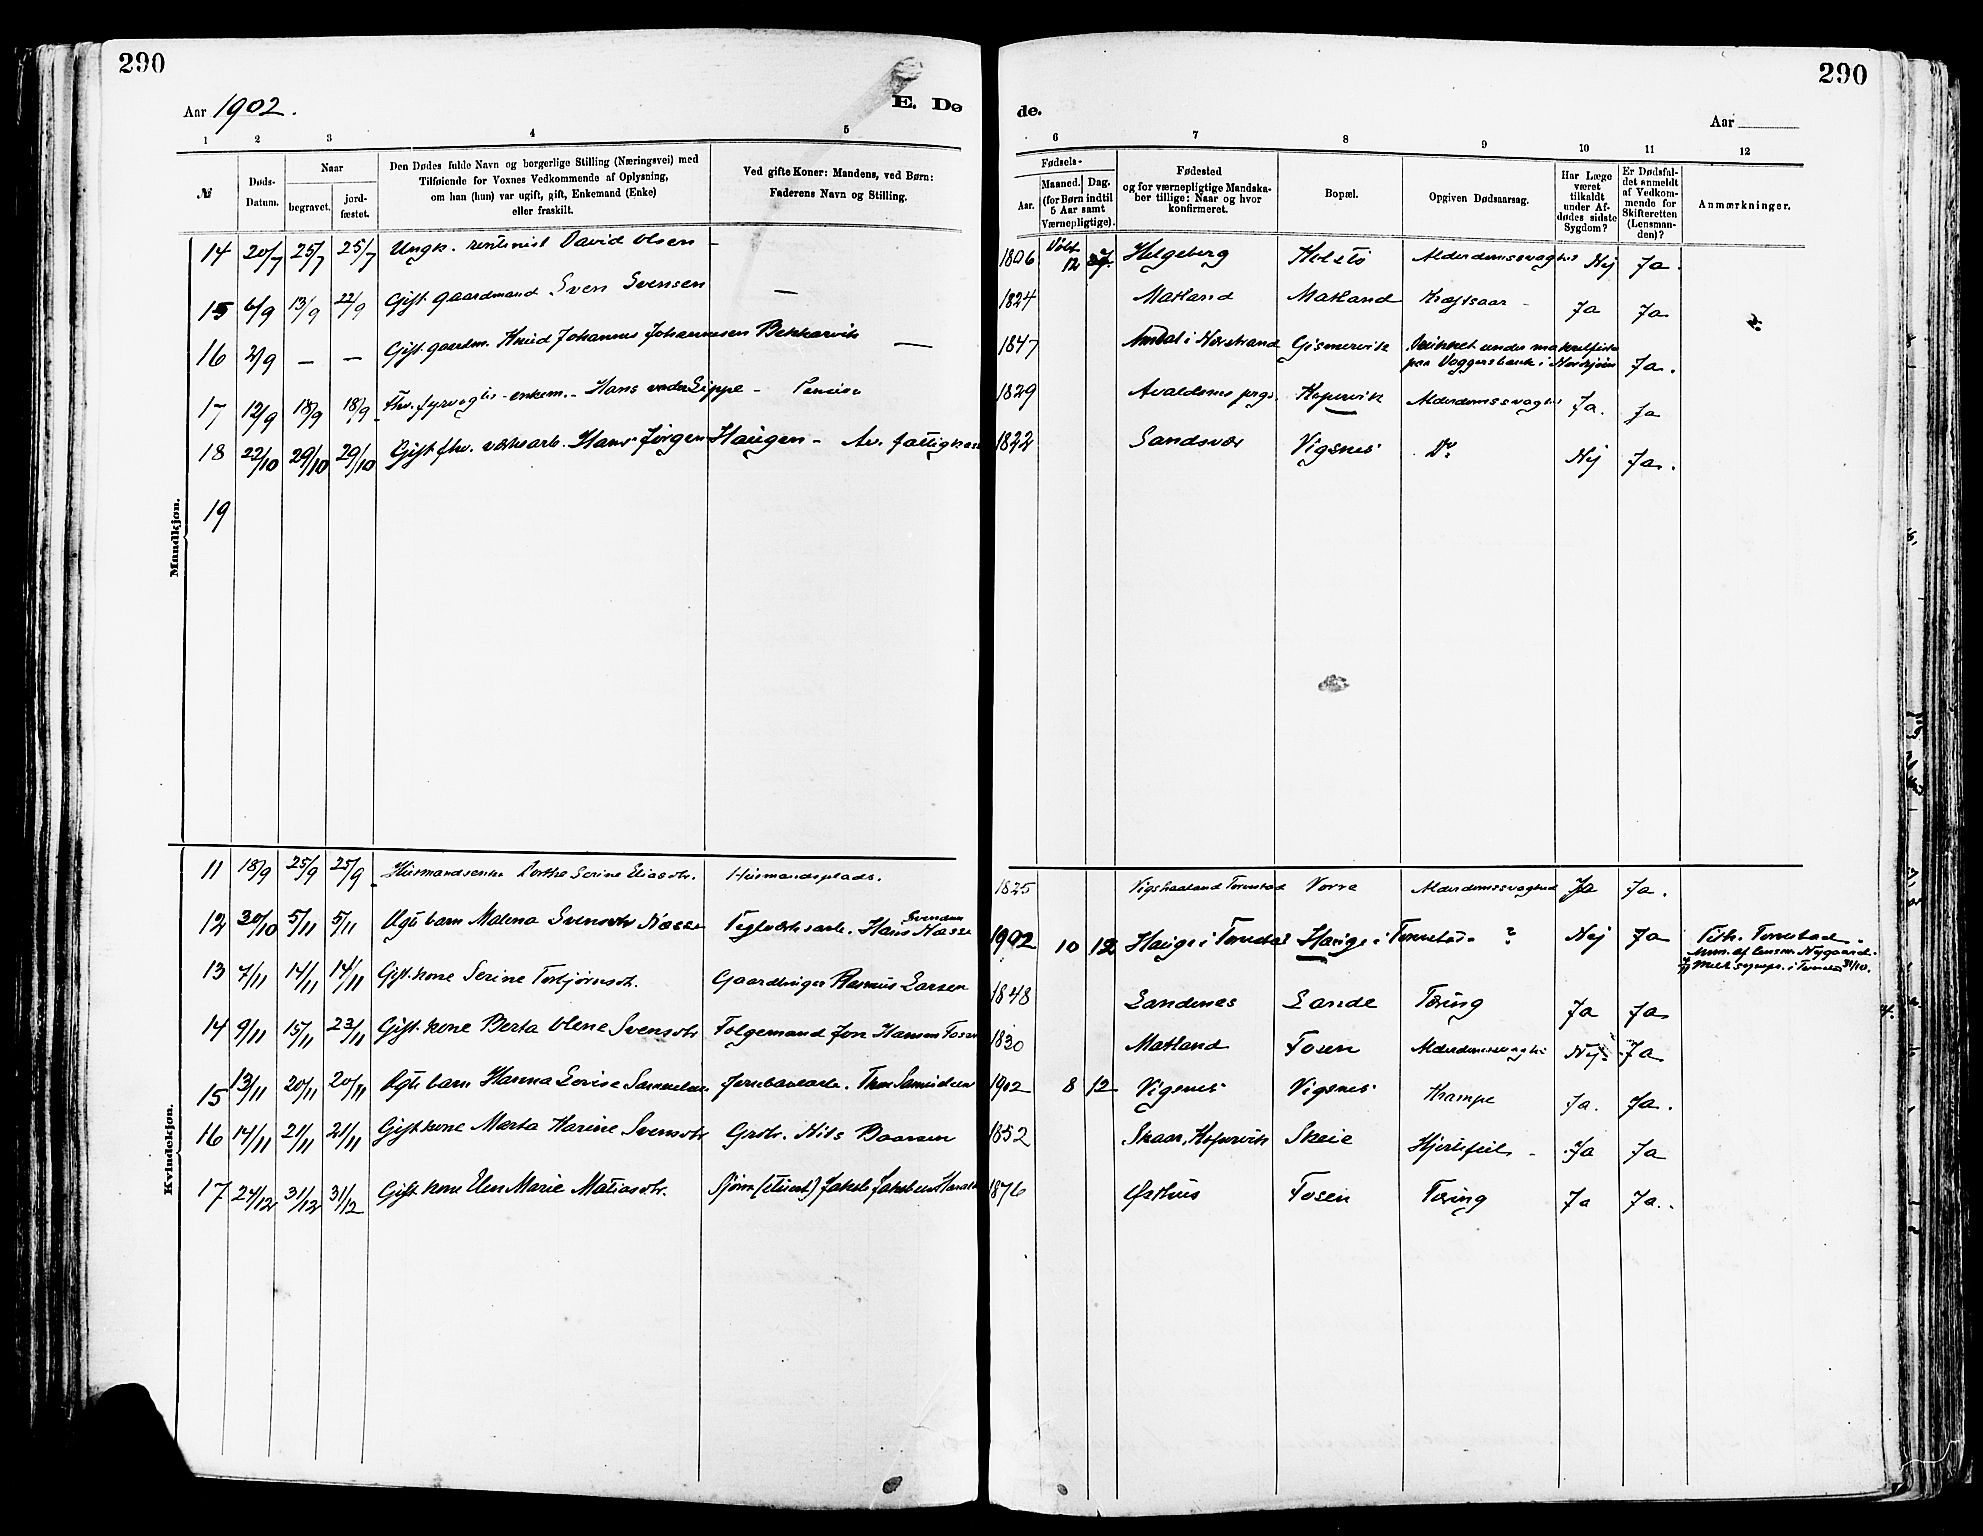 290
290
Aar 1902.
E. Dø
de.
Aar
1 2 3 4 5 6 7 8 9 10 11 12
№
Døds-Datum.
Naar
begravet.
jord-fæstet.
Den Dødes fulde Navn og borgerlige Stilling (Næringsvei) med
Tilføiende for Voxnes Vedkommende af Oplysning,
om han (hun) var ugift, gift, Enkemand (Enke)
eller fraskilt.
Ved gifte Koner: Mandens, ved Børn:
Faderens Navn og Stilling.
Fødsels-
Aar.
Maaned. Dag.
(for Børn indtil
5 Aar samt
Værnepligtige).
Fødested
og for værnepligtige Mandska-
ber tillige: Naar og hvor
konfirmeret.
Bopæl.
Opgiven Dødsaarsag.
Har Læge
været
tilkaldt
under Af-
dødes sidste
Sygdom?
Er Dødsfal-
det anmeldt
af Vedkom-
mende for
Skifteretten
(Lensman-
den)?
Anmærkninger.
Mandkjøn.
14 20/7 25/7 25/7 Ungk. rentenist David Olsen – 1806 12 Helgeberg Alderdomssvaghed Nej Ja.
15 6/9 13/9 22/9 Gift gaardmand Sven Svensen — 1824 Matland Matland Ja Ja
16 2/9 — — Gift gaardm. Knud Johannes Johannesen Bekkarvik — 1847 i Nerstrand Gismervik Druknet under makrelfiske
paa i Nordsjøen Ja.
17 12/9 18/9 18/9 Fhv. fyrvogter – enkem. – Hans von der Lippe – Pension 1829 Avaldsnes prgj. Kopervik Alderdomssvaghed Ja. Ja
18 22/10 29/10 29/10 Gift fhv. værksarb. Hans Jørgen Haugen – Av. fattigkas 1822 Sandsvær Vigsnes Do Nej Ja.
19
Kvindekjøn.
11 18/9 25/9 25/9 Husmandsenke Dorthe Serine Eliasdtr. Husmandsplads. 1825 Torvestad Vorre Alderdomssvaghed Ja Ja.
12 30/10 5/11 5/11 Ægte barn Malena Svensdtr Næsse Teglværksarb. Hans Svendsen Næsse 1902 10 12 Hauge i Torvestad Hauge i Torvestad ? Nej Ja Tilh. Torvestad.
Anm. af lensm. Nygaard
i Torvestad 31/10.
13 7/11 14/11 14/11 Gift kone Serine Torbjørnsdt. Gaardbruger Rasmus Larsen 1848 Sandenes Lande Tæring Ja Ja
14 9/11 15/11 23/11 Gift kone Berta Olene Svensdtr Folgemand Jon Hansen Fosen 1830 Matland Fosen Alderdomssvaghed Nej Ja
15 13/11 20/11 20/11 Ægte barn Hanna Lovise Samuelsen Jernbanearb. Thor Samuelsen 1902 8 12 Vigsnes Vigsnes Krampe Ja. Ja.
16 14/11 21/11 21/11 Gift kone Marta Karine Svensdtr Grbr. Nils Baarsen 1852 Skaar, Kopervik Skeie Hjertefeil – Ja Ja
17 24/12 31/12 31/12 Gift kone Elen Marie Matiasdtr. Sjøm. Jakob Jakobsen 1876 Østhus Fosen Tæring Ja Ja.